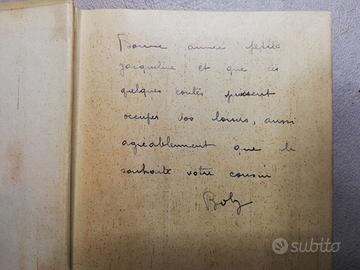 Bonne année petite
Jacqueline et que ces
quelques contes puissent
occuper vos loisirs, aussi
agréablement que le
souhaite votre cousin
Boby
subito